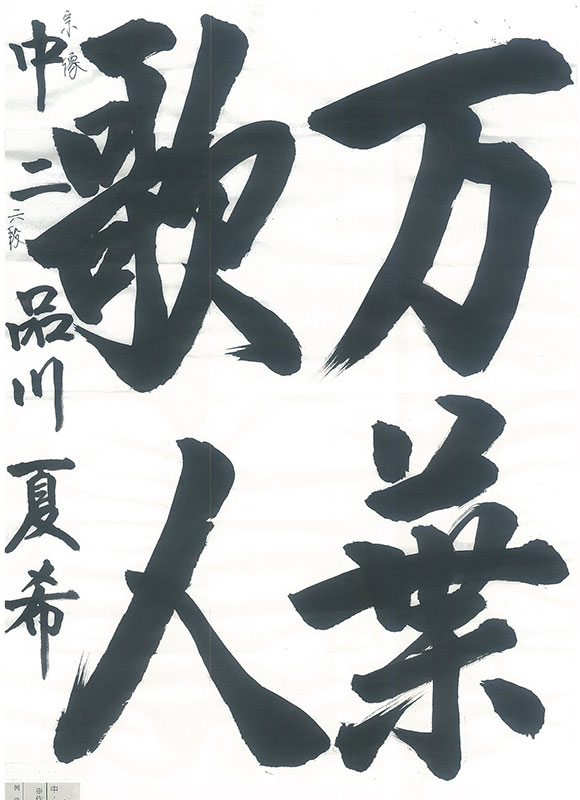 万葉
歌人
中二 品川夏希
宗像
六段